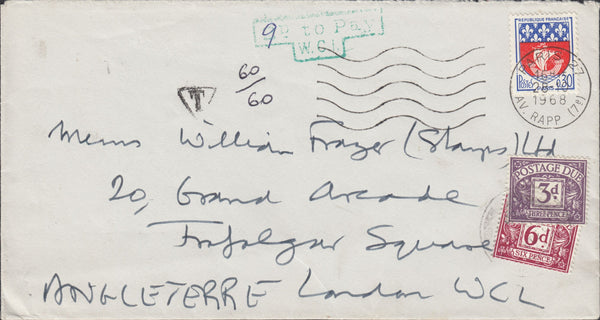 9D to Pay
W.C.1.
REPUBLIQUE FRANÇAISE
Postes 0,30
PARIS 27
28-10
1968
AV. RAPP (7e)
60/60
T
Messrs William Frazer (Stamps) Ltd
20, Grand Arcade
Trafalgar Square
ANGLETERRE London WC1
POSTAGE DUE
3d.
THREE PENCE
6d
SIX PENCE